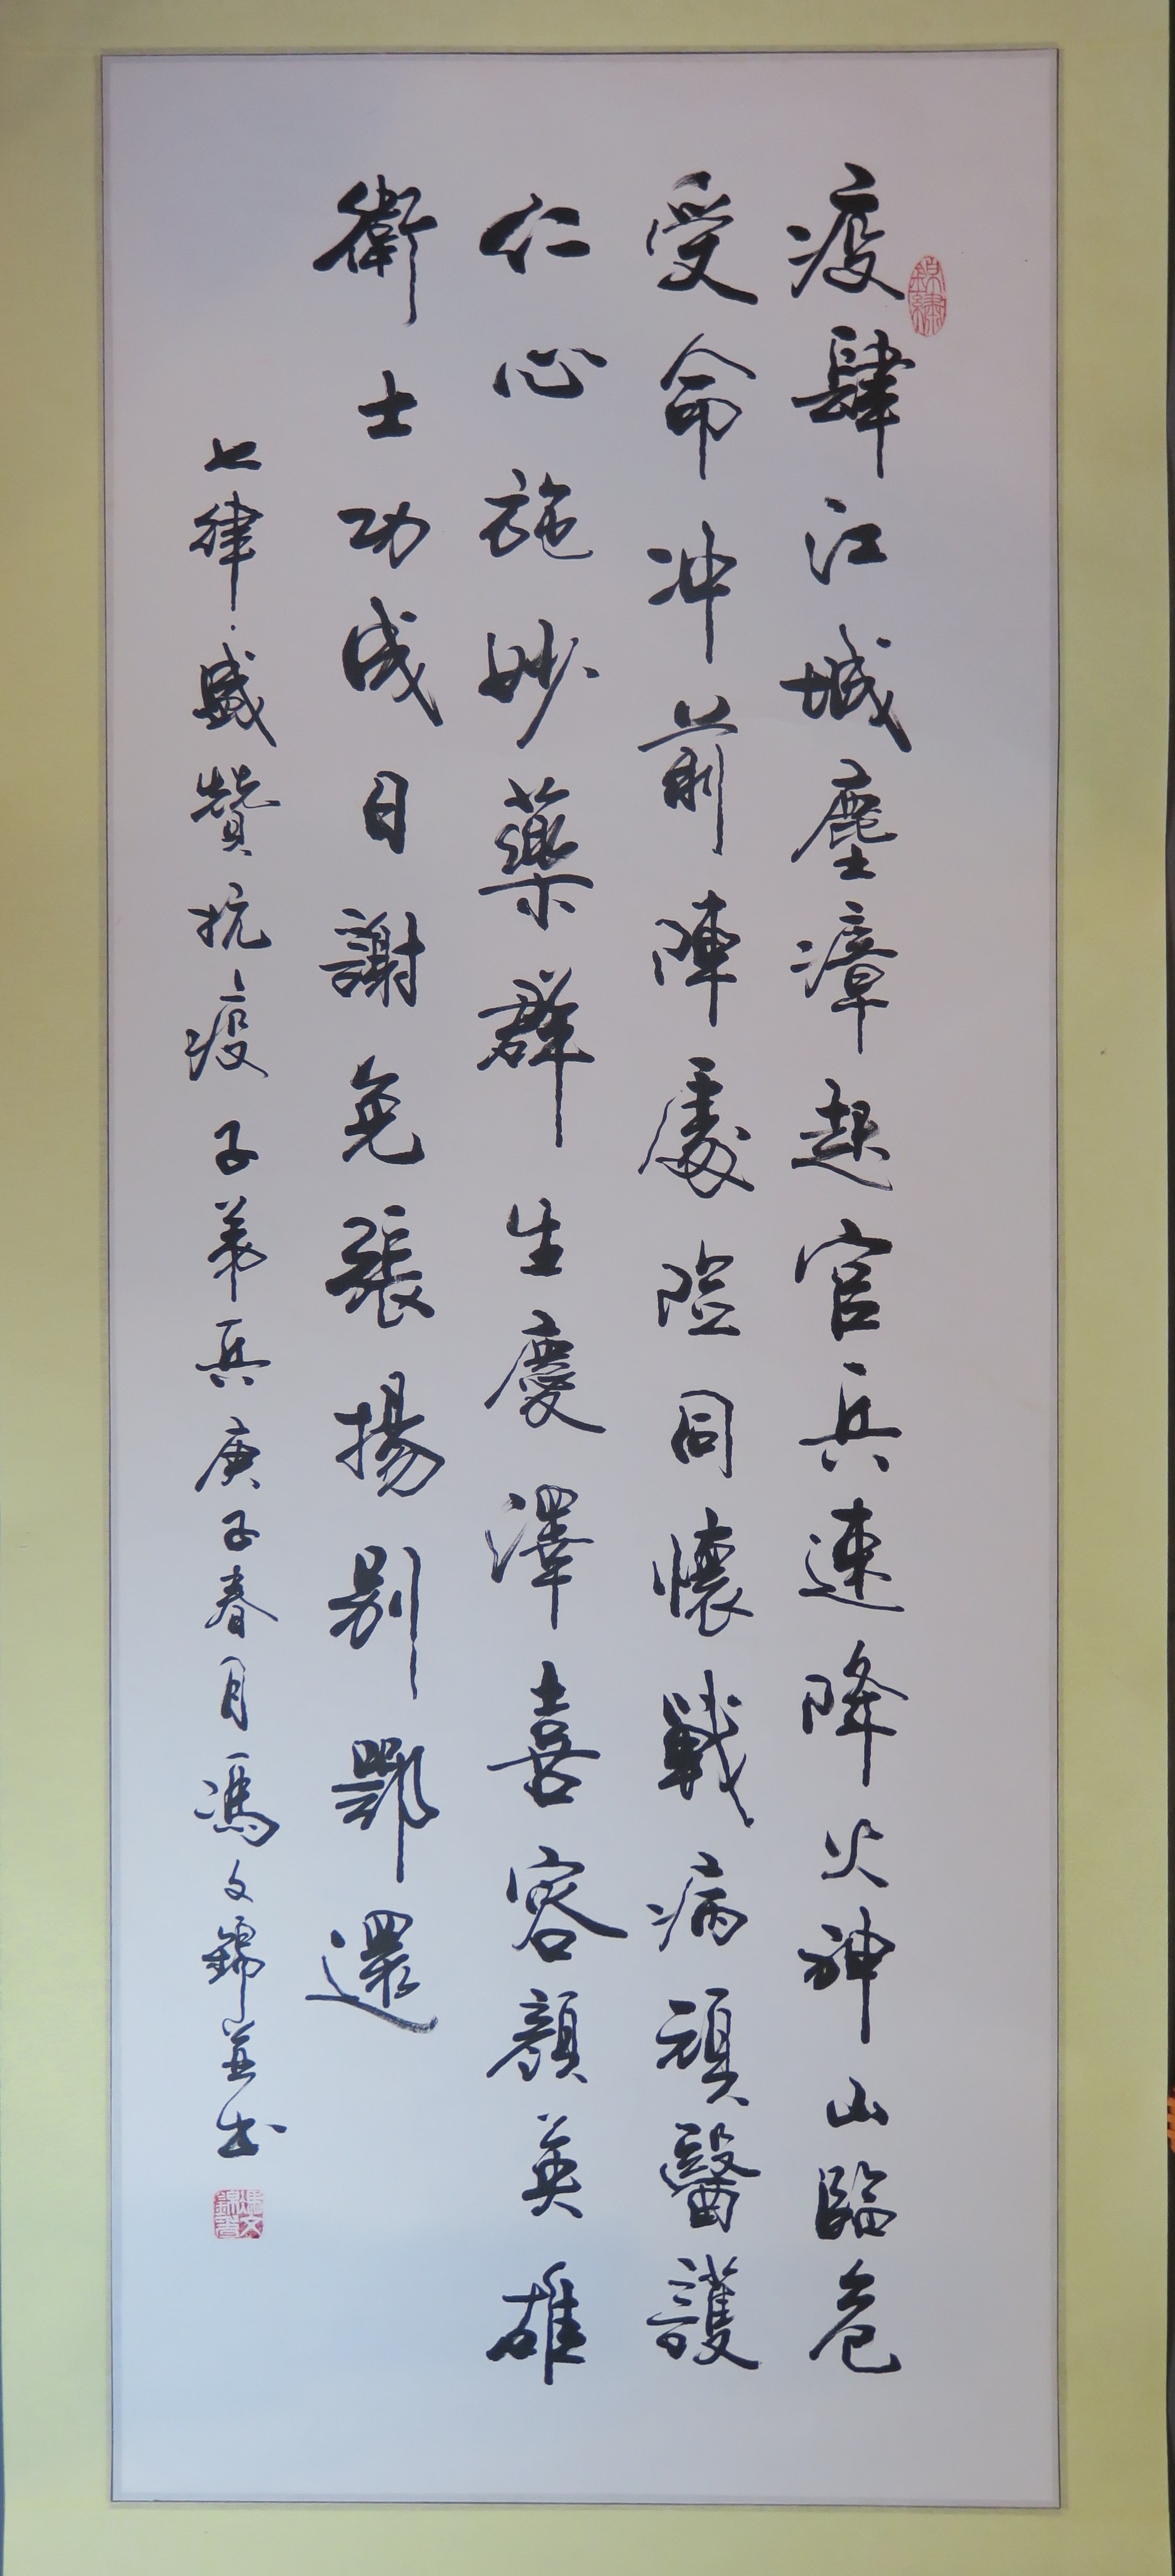 疫肆江城塵漳起官兵速降火神山臨危
受命冲前陣處险同懷戰病頑醫護
仁心施妙藥群生慶澤喜容顏英雄
衛士功成日謝免張揚别鄂還
七律·盛贊抗疫子弟兵庚子春月馮文錦并书